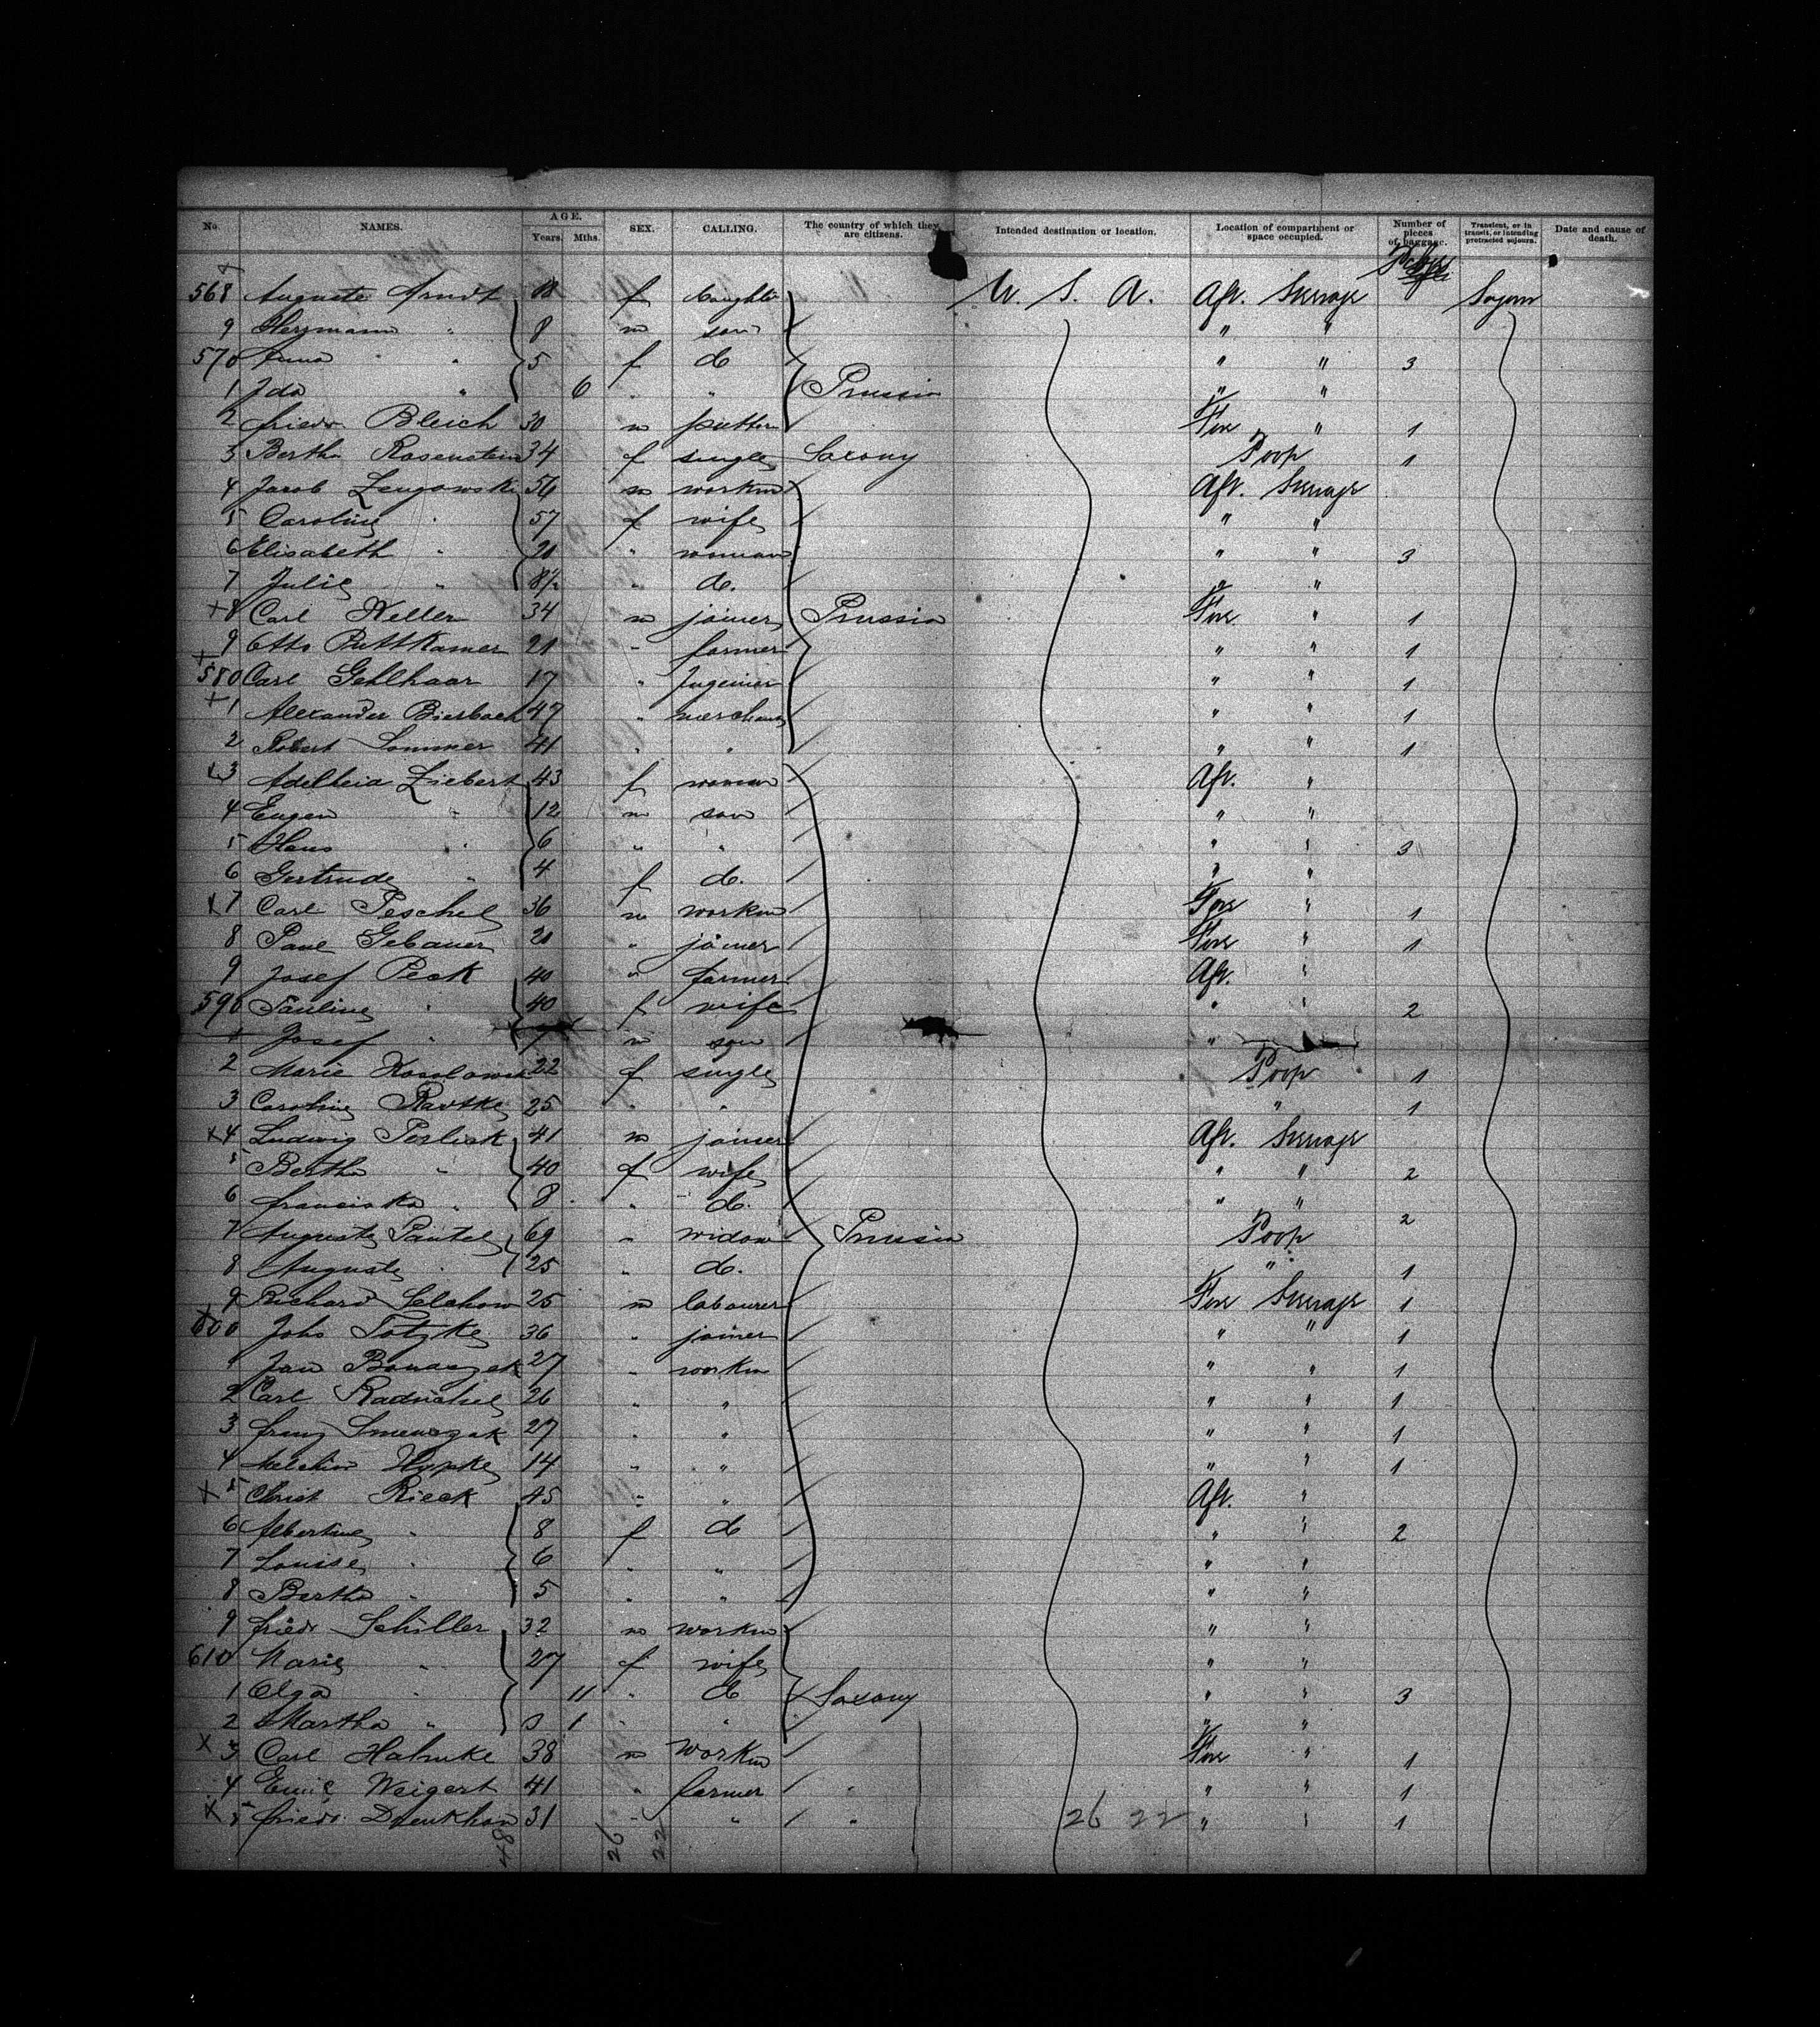 No NAMES. AGE. Years. Mths. SEX. CALLING. The country of which they are citizens. Intended destination or location. Location of compartment or space occupied. Number of pieces of baggage. Transient, or in transit, or intending protracted sojourn. Date and cause of death.
568 Auguste Arndt f daughter U. S. A. Aft. Steerage Sojourn
9 Hermann " 8 m son " "
570 Anna " 5 f do " " 3
1 Ida " 6 " " Prussia " "
2 Friedr. Bleich 30 m Fore " 1
3 Bertha Rosenstein 34 f single Saxony Poop 1
4 Jacob 56 m workm Aft. Steerage
5 Caroline " 57 f wife " "
6 Elisabeth " 20 " woman " " 3
7 Julie " 8½ " do. " "
+ 8 Carl Heller 34 m joiner Prussia Fore " 1
9 Otto Puttkamer 21 " farmer " " 1
+ 580 Carl Gehlhaar 17 " Ingenier " " 1
+ 1 Alexander Bierbach 47 " merchant " " 1
2 Robert Sommer 41 " " " " 1
3 Adelheid Liebert 43 f woman Aft. "
4 Eugen " 12 m son " "
5 Hans " 6 " " " " 3
6 Gertrude " 4 f do. " "
x 7 Carl Peschel 36 m workm Fore " 1
8 Paul Gebauer 21 " joiner Fore " 1
9 Josef Peck 40 " farmer Aft. "
590 Pauline " 40 f wife " " 2
1 Josef " m son "
2 Marie 22 f single Poop 1
3 Caroline Radtke 25 " " " 1
x 4 Ludwig 41 m joiner Aft. Steerage
5 Bertha " 40 f wife " " 2
6 Franciska " 8 " do. " "
7 Auguste Pantel 69 " widow Prussia Poop 2
8 Auguste " 25 " do. " 1
9 Richard Selchow 25 m labourer Fore Steerage 1
x 600 Johs Totzke 36 " joiner " " 1
1 Jan 27 " workm " " 1
2 Carl 26 " " " " 1
3 Franz 27 " " " " 1
4 Melchior 14 " " " " 1
x 5 Christ Rieck 45 " " Aft. "
6 Albertine " 8 f do " " 2
7 Louise " 6 " " " "
8 Bertha " 5 " " " "
9 Friedr. Schiller 32 m workm " "
610 Marie " 27 f wife " "
1 Olga " 11 " do Saxony " " 3
2 Martha " 1 " " " "
x 3 Carl Hahnke 38 m workm Fore " 1
4 Emil Weigert 41 " farmer " " " 1
x 5 Friedr. 31 " " " " " 1
48 26 22 26 22